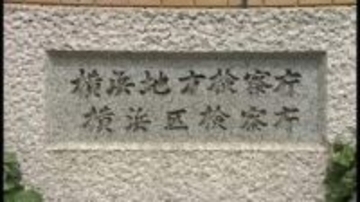 横浜地方検察庁
横浜区検察庁